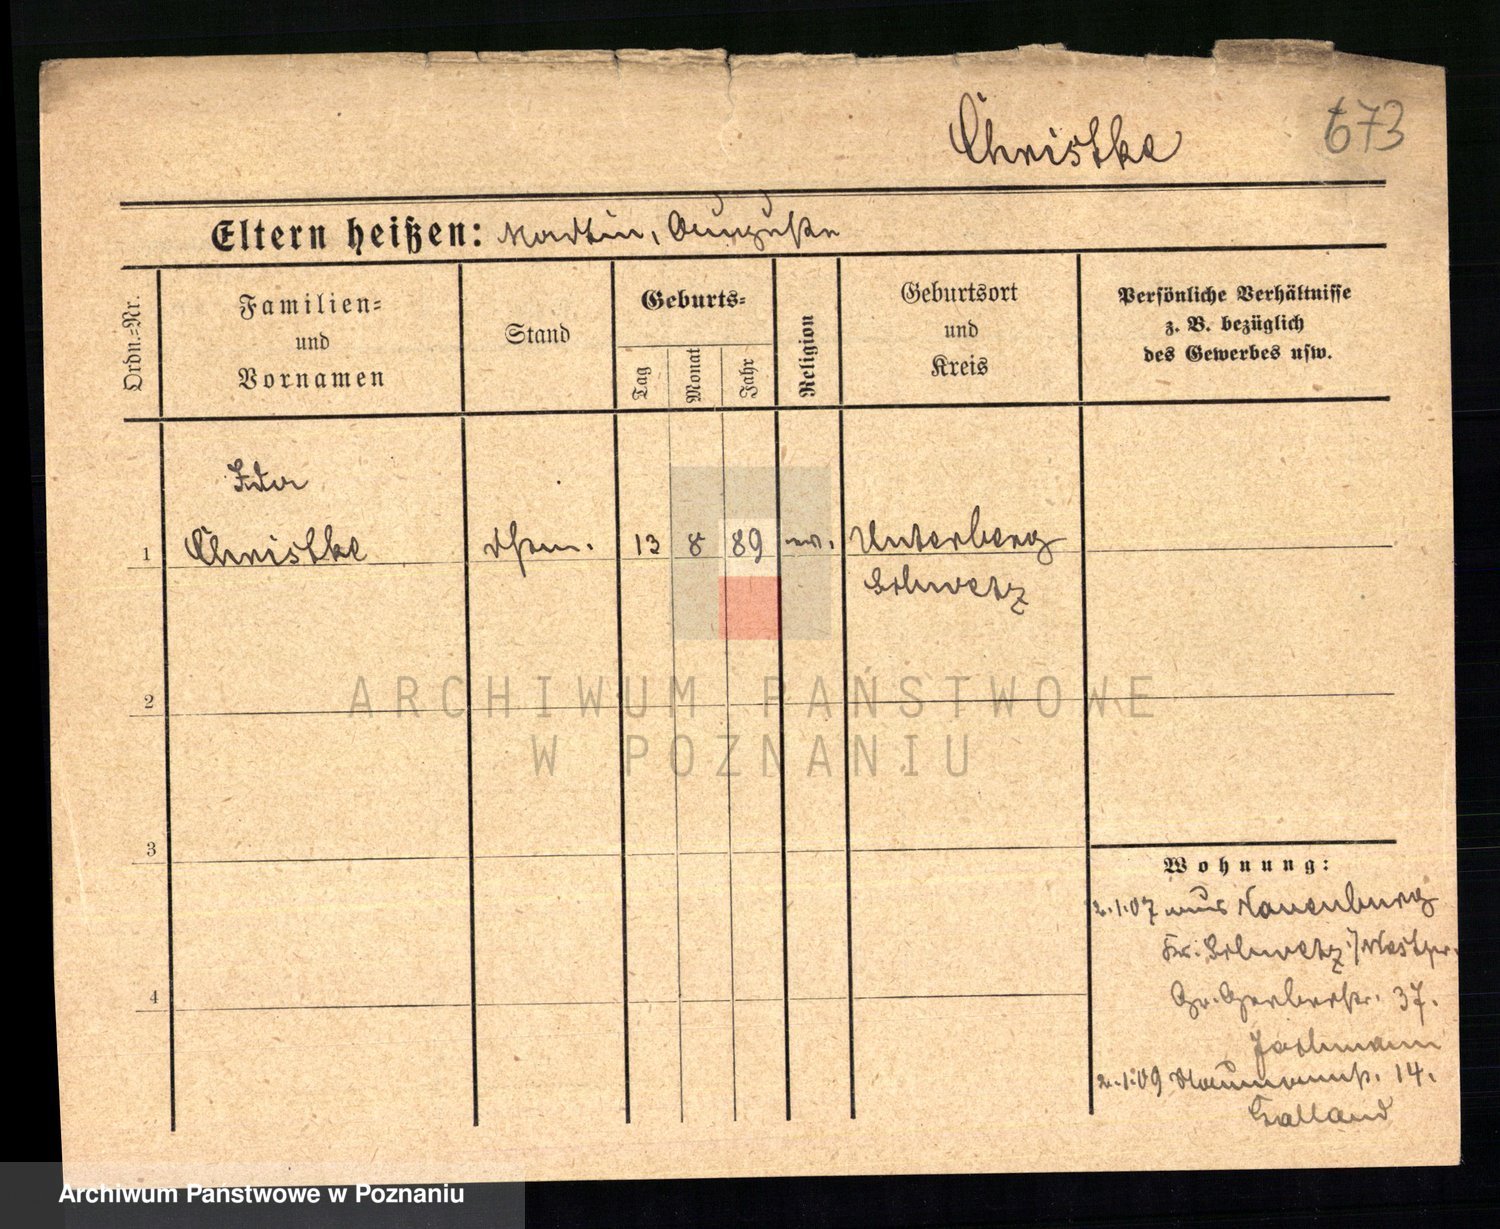 Christke
673
Eltern heißen: Martin, Auguste
Ordn.-Nr.
Familien-
und
Vornamen
Stand
Geburts-
Tag
Monat
Jahr
Religion
Geburtsort
und
Kreis
Persönliche Verhältnisse
z. B. bezüglich
des Gewerbes usw.
Ida
1 Christke 13 8 89 ev. Unterberg
Schwetz
2
ARCHIWUM PAŃSTWOWE
W POZNANIU
3
Wohnung:
2.1.07 aus Neuenburg
Kr. Schwetz/Westpr.
Gr. Gerberstr. 37.
4
2.1.09 Naumannstr. 14.
Galland
Archiwum Państwowe w Poznaniu